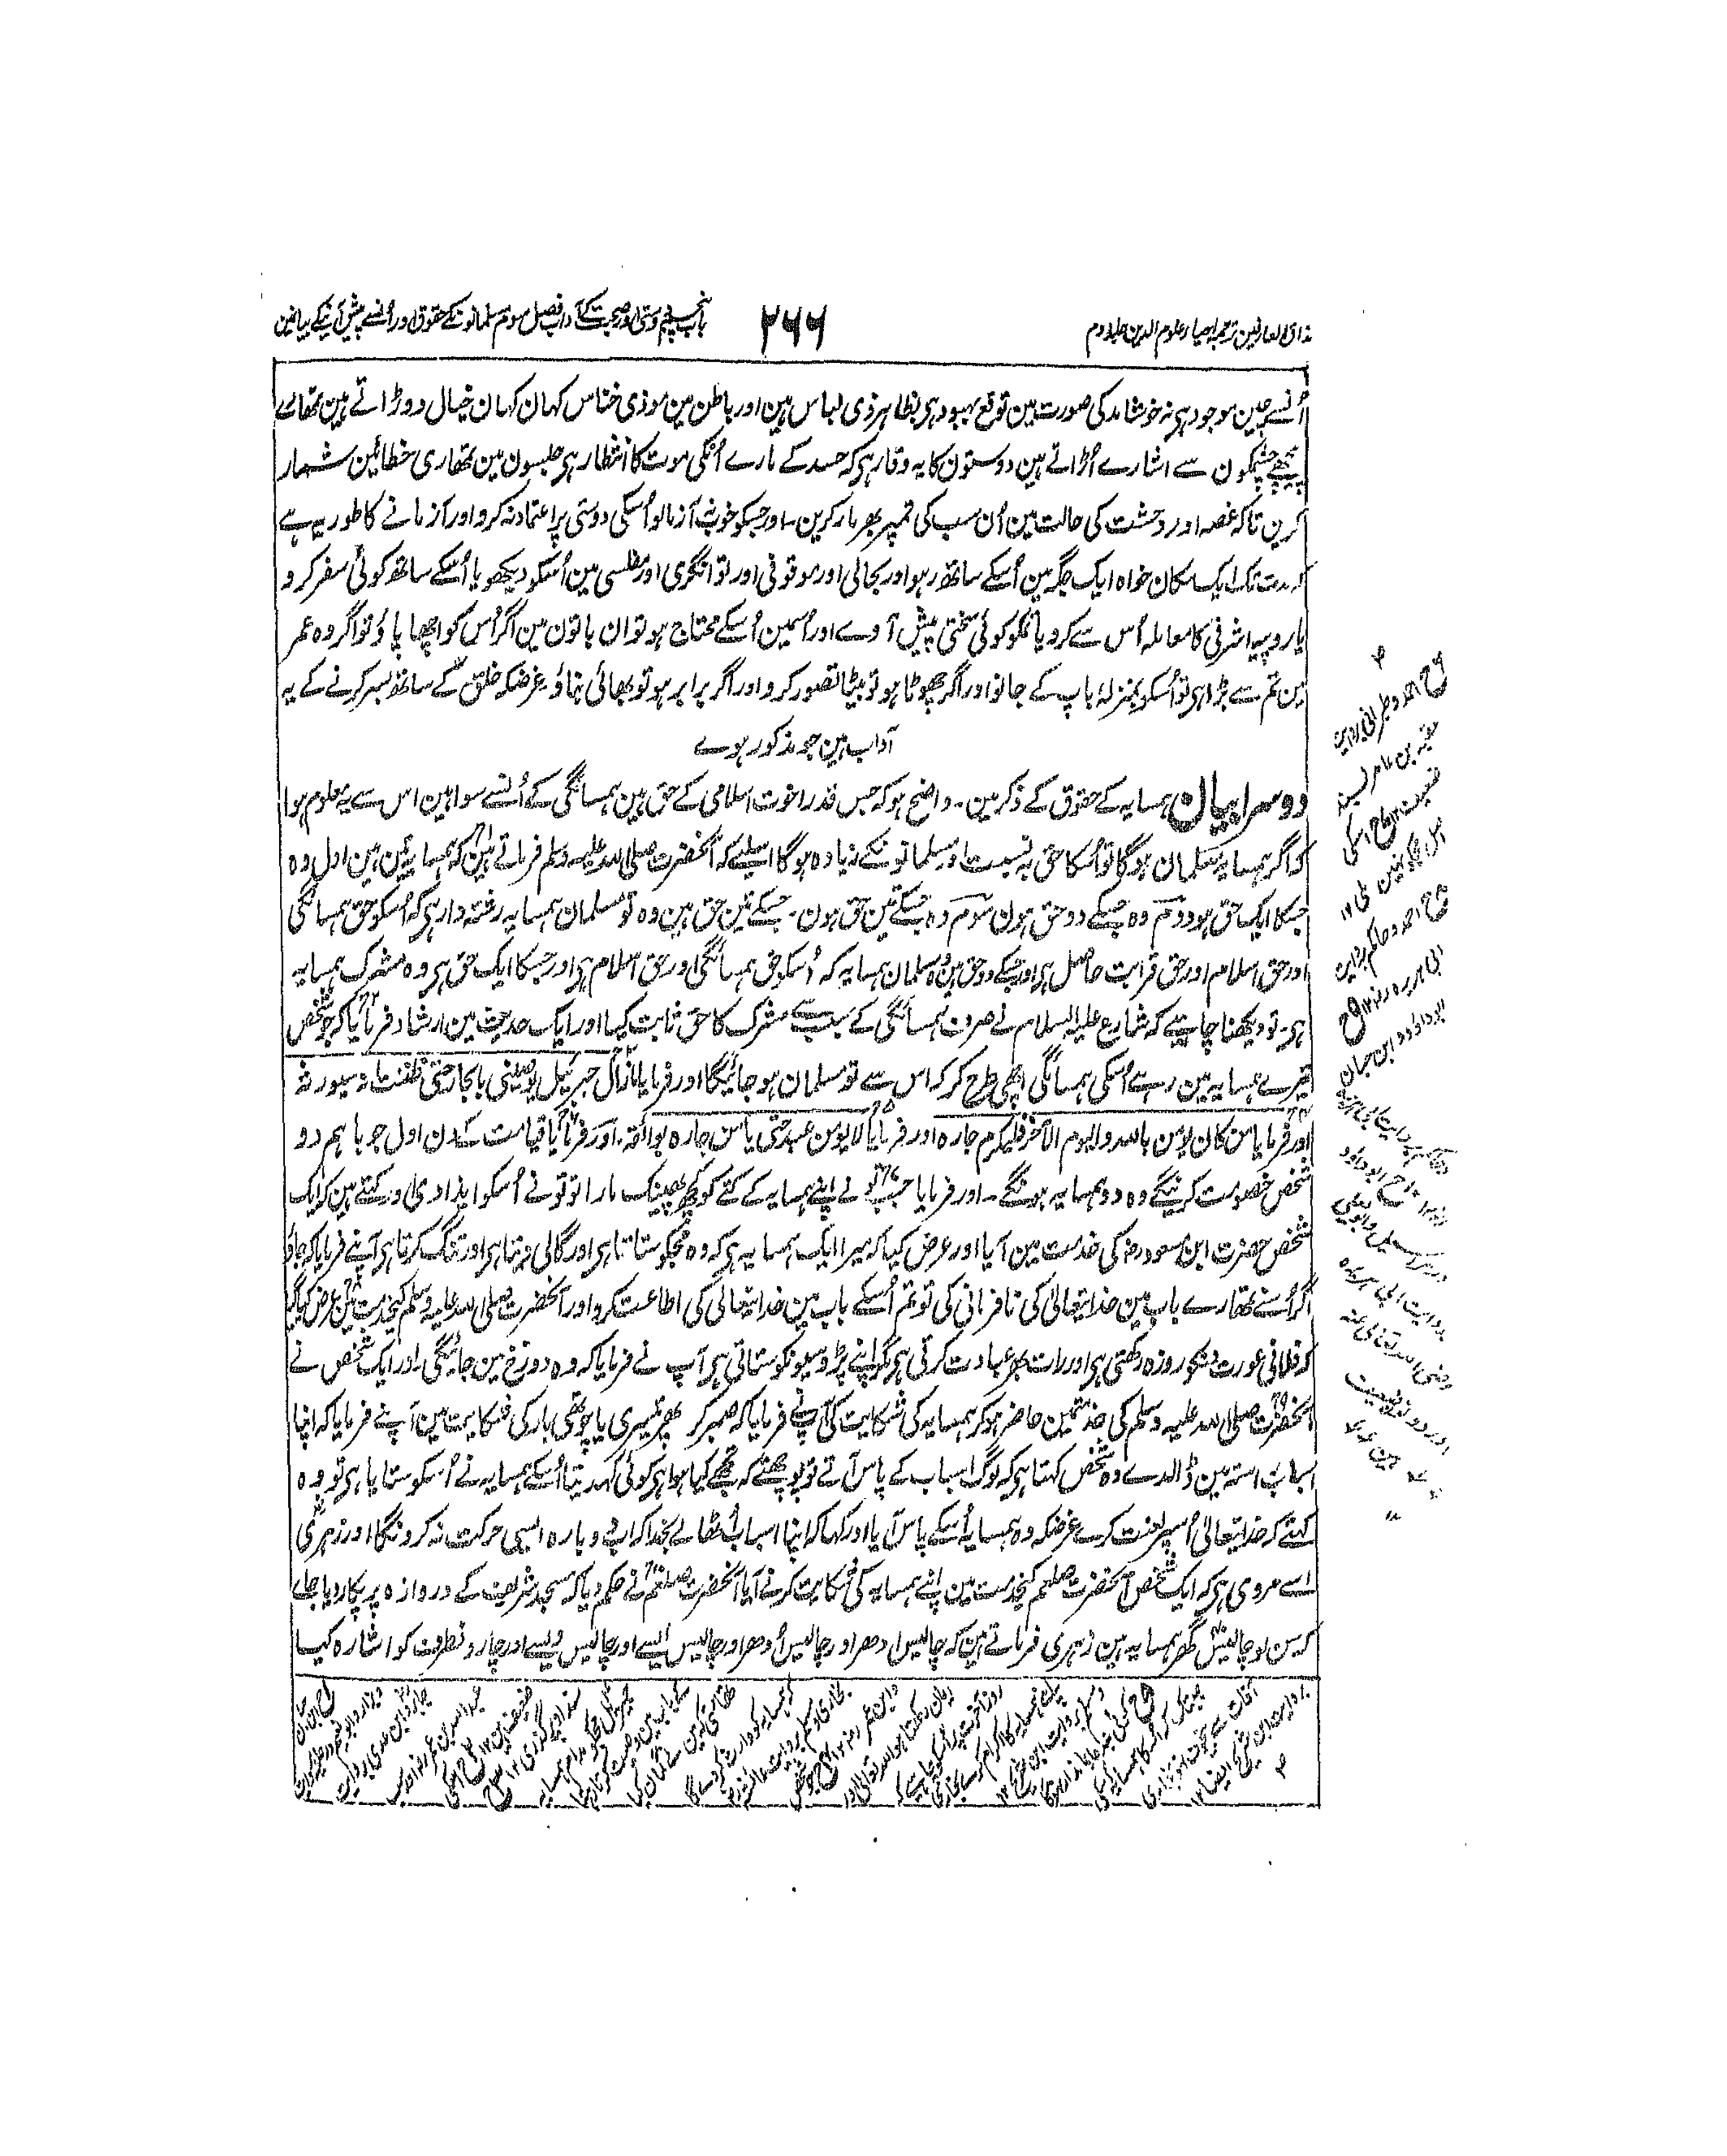 مذاق العارفین ترجمہ احیاء علوم الدین جلد دوم
۲۶۶
باب پنجم دوستی اور صحبت کے آداب فصل سوم مسلمانونکے حقوق اور اُنسے پیش آنیکے بیانمین
اُنسے چین موجود ہی نہ خوشامد کی صورت مین توقع بہبود ہی بظاہر ذی لباس ہین اور باطن مین موذی خناس کہان کہان خیال دوڑاتے ہین تمھارے
پیچھے چشمکون سے اشارے اُڑاتے ہین دوستون کا یہ وقار ہی کہ حسد کے مارے اُنکی موت کا انتظار ہی جلسون مین تمھاری خطائین شمار
کرین تاکہ غصہ اور وحشت کی حالت مین اُن سب کی تمپر بھرمار کرین۔ اور جسکو خوب نہ آزمالو اُسکی دوستی پر اعتماد نہ کرو اور آزمانے کا طور یہ ہے
کہ مدت تک ایک مکان خواہ ایک جگہ مین اُسکے ساتھ رہو اور بحالی اور موقوفی اور توانگری اور مفلسی مین اُسکو دیکھو یا اُسکے ساتھ کوئی سفر کرو
یا روپیہ اشرفی کا معاملہ اُس سے کرو یا تمکو کوئی سختی پیش آوے اور اُسمین اُسکے محتاج ہو تو ان باتون مین اگر اُس کو اچھا پاؤ تو اگر وہ عمر
مین تم سے بڑا ہی تو اُسکو بمنزلۂ باپ کے جانو اور اگر چھوٹا ہو تو بیٹا تصور کرو اور اگر برابر ہو تو بھائی بناؤ۔ غرضکہ خلق کے ساتھ بسر کرنے کے یہ
آداب ہین جو مذکور ہوے
دوسرا بیان ہمسایہ کے حقوق کے ذکر مین۔ واضح ہو کہ جس قدر اخوت اسلامی کے حق ہین ہمسائگی کے اُنسے سوا ہین اس سے یہ معلوم ہوا
کہ اگر ہمسایہ مسلمان ہوگا تو اُسکا حق بہ نسبت اور مسلمانونکے زیادہ ہوگا اسلیے کہ آنحضرت صلی اللہ علیہ وسلم فرماتے ہین کہ ہمسایہ تین ہین اول وہ
جسکا ایک حق ہو دوم وہ جسکے دو حق ہون سوم وہ جسکے تین حق ہون۔ جسکے تین حق ہین وہ تو مسلمان ہمسایہ رشتہ دار ہی کہ اُسکو حق ہمسائگی
اور حق اسلام اور حق قرابت حاصل ہی اور جسکے دو حق ہین وہ مسلمان ہمسایہ کہ اُسکو حق ہمسائگی اور حق اسلام ہی اور جسکا ایک حق ہی وہ مشرک ہمسایہ
ہی۔ تو دیکھنا چاہیے کہ شارع علیہ السلام نے صرف ہمسائگی کے سبب سے مشرک کا حق ثابت کیا اور ایک حدیث مین ارشاد فرمایا کہ جو شخص
تیرے ہمسایہ مین رہے اُسکی ہمسائگی اچھی طرح کر کہ اس سے تو مسلمان ہو جائیگا اور فرمایا مازال جبرئیل یوصینی بالجار حتی ظننت انہ سیورثہ
اور فرمایا من کان یومن باللہ والیوم الآخر فلیکرم جارہ اور فرمایا لا یومن عبد حتی یامن جارہ بوائقہ۔ اور فرمایا قیامت کے دن اول جو باہم دو
شخص خصومت کرینگے وہ دو ہمسایہ ہونگے۔ اور فرمایا جب تو نے اپنے ہمسایہ کے کتے کو کچھ پھینک مارا تو تو نے اُسکو ایذا دی اور کہتے ہین کہ ایک
شخص حضرت ابن مسعود رضہ کی خدمت مین آیا اور عرض کیا کہ میرا ایک ہمسایہ ہی کہ وہ مجکو ستاتا ہی اور گالی دیتا ہی اور تنگ کرتا ہی آپنے فرمایا کہ جاؤ
اگر اُسنے تمھارے باب مین خدا تعالیٰ کی نافرمانی کی تو تم اُسکے باب مین خدا تعالیٰ کی اطاعت کرو اور آنحضرت صلی اللہ علیہ وسلم کیخدمت مین عرض کیا گیا
کہ فلانی عورت دنکو روزہ رکھتی ہی اور رات بھر عبادت کرتی ہی مگر اپنے پڑوسیونکو ستاتی ہی آپ نے فرمایا کہ وہ دوزخ مین جائیگی اور ایک شخص نے
آنحضرت صلی اللہ علیہ وسلم کی خدمتمین حاضر ہوکر ہمسایہ کی شکایت کی آپنے فرمایا کہ صبر کر پھر تیسری یا چوتھی بار کی شکایت مین آپنے فرمایا کہ اپنا
اسباب راستہ مین ڈالدے وہ شخص کہتا ہی کہ لوگ اسباب کے پاس آتے تو پوچھتے کہ تجھے کیا ہوا ہی کوئی کہدیتا اُسکے ہمسایہ نے اُسکو ستایا ہی تو وہ
کہتے کہ خدا تعالیٰ اُسپر لعنت کرے غرضکہ وہ ہمسایہ اُسکے پاس آیا اور کہا کہ اپنا اسباب اُٹھالے بخدا کہ اب دوبارہ ایسی حرکت نہ کرونگا اور زہری
سے مروی ہی کہ ایک شخص آنحضرت صلعم کیخدمت مین اپنے ہمسایہ کی شکایت کرنے آیا آنحضرت صلعم نے حکم دیا کہ مسجد شریف کے دروازہ پر پکار دیا جاے
کہ سن لو چالیس گھر ہمسایہ ہین زہری فرماتے ہین کہ چالیس ادھر اور چالیس اُدھر اور چالیس ایسے اور چالیس ویسے اور چارونطرف کو اشارہ کیا
احمد و طبرانی بروایت
عقبہ بن عامر بسند
ضعیف
احمد و حاکم بروایت
ابی ہریرہ رضہ
ابوداود و ابن حبان
و حاکم بروایت ابی ہریرہ
بروایت ابی ہریرہ
رضی اللہ تعالی عنہ
اور دونو ضعیف
ہین